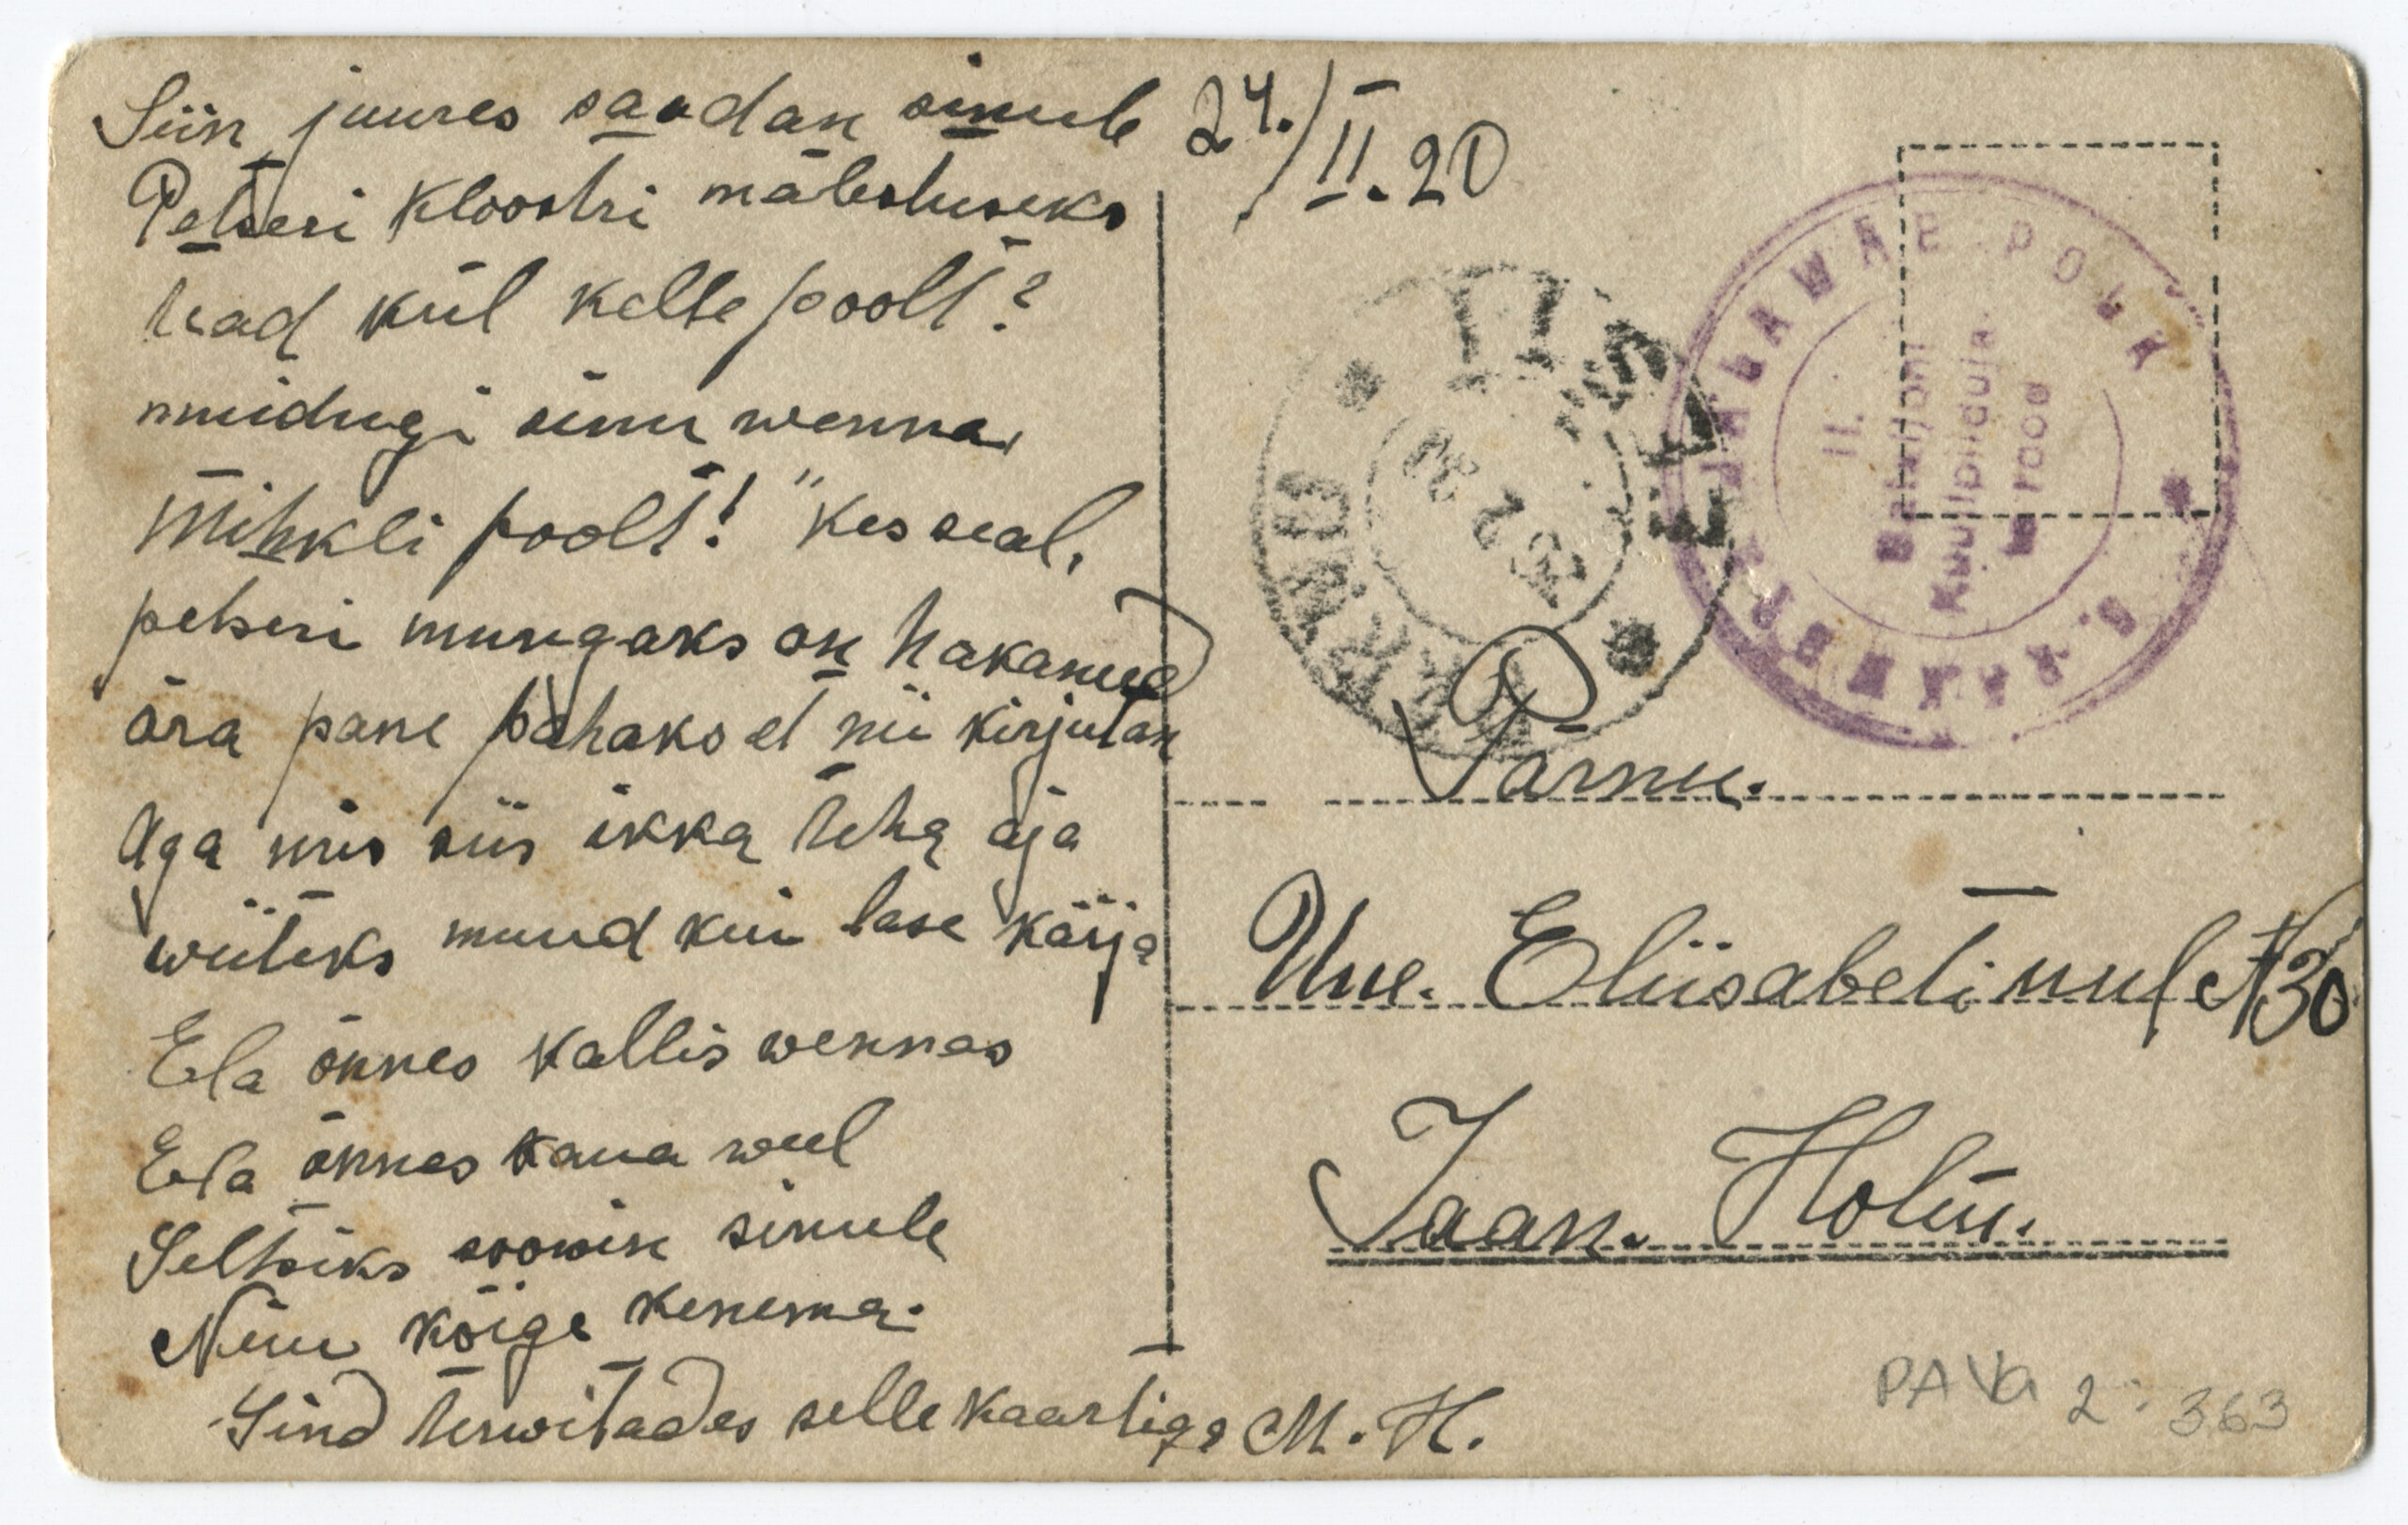 Siin juures saadan sinule
Petseri kloostri mälestuseks
tead kül kelle poolt?
muidugi sinu wenna
Mihkli poolt! "kes seal,
petseri mungaks on hakanud
ära pane pahaks et nii kirjutan
Aga mis siis ikka teha aja
wiiteks muud kui lase kärja
Ela õnnes kallis wennas
Ela õnnes kaua weel
Seltsiks soowin sinule
Neiu kõige kenema.
Sind terwitades selle kaardiga M. H.
24./II. 20
II
II.
Kuulipilduja
POLK
Pärnu.
Uue. Eliisabeti uul № 30
Jaan. Holm.
PAVa 2: 363